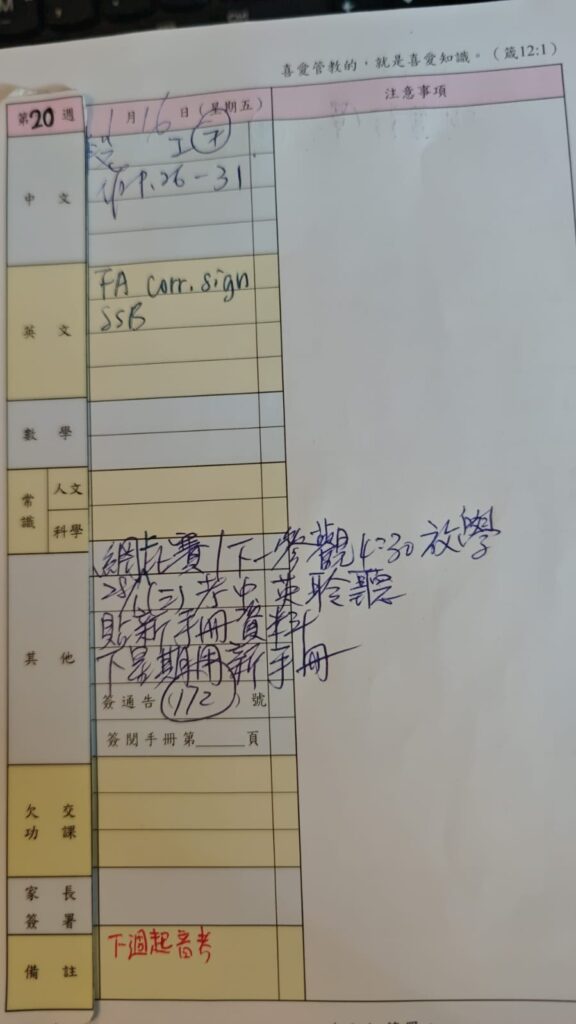 喜愛管教的，就是喜愛知識。（箴12:1）
第20週
月16日（星期五）
注意事項
中文
作P.26-31
英文
FA corr. sign
SSB
數學
常識
人文
科學
其他
下一參觀4:30放學
(三)考中英聆聽
貼新手冊資料
下星期用新手冊
簽通告（172）號
簽閱手冊第______頁
欠交功課
家長簽署
備註
下週起音考